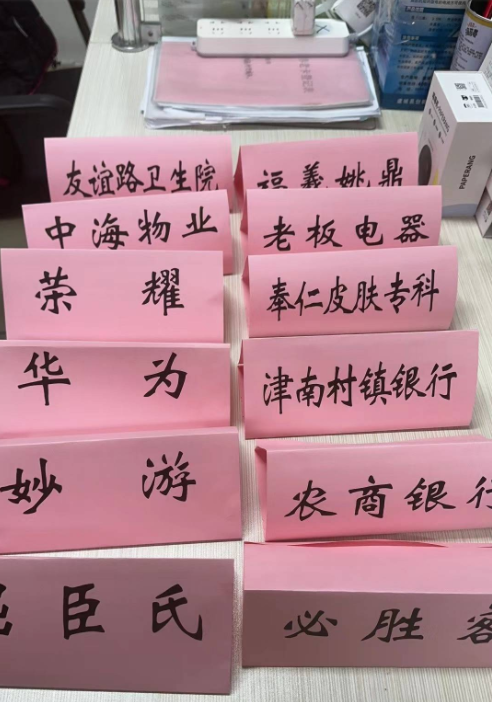 友谊路卫生院
福義姚鼎
中海物业
老板电器
荣耀
奉仁皮肤专科
华为
津南村镇银行
妙游
农商银行
屈臣氏
必胜客
PAPERANG